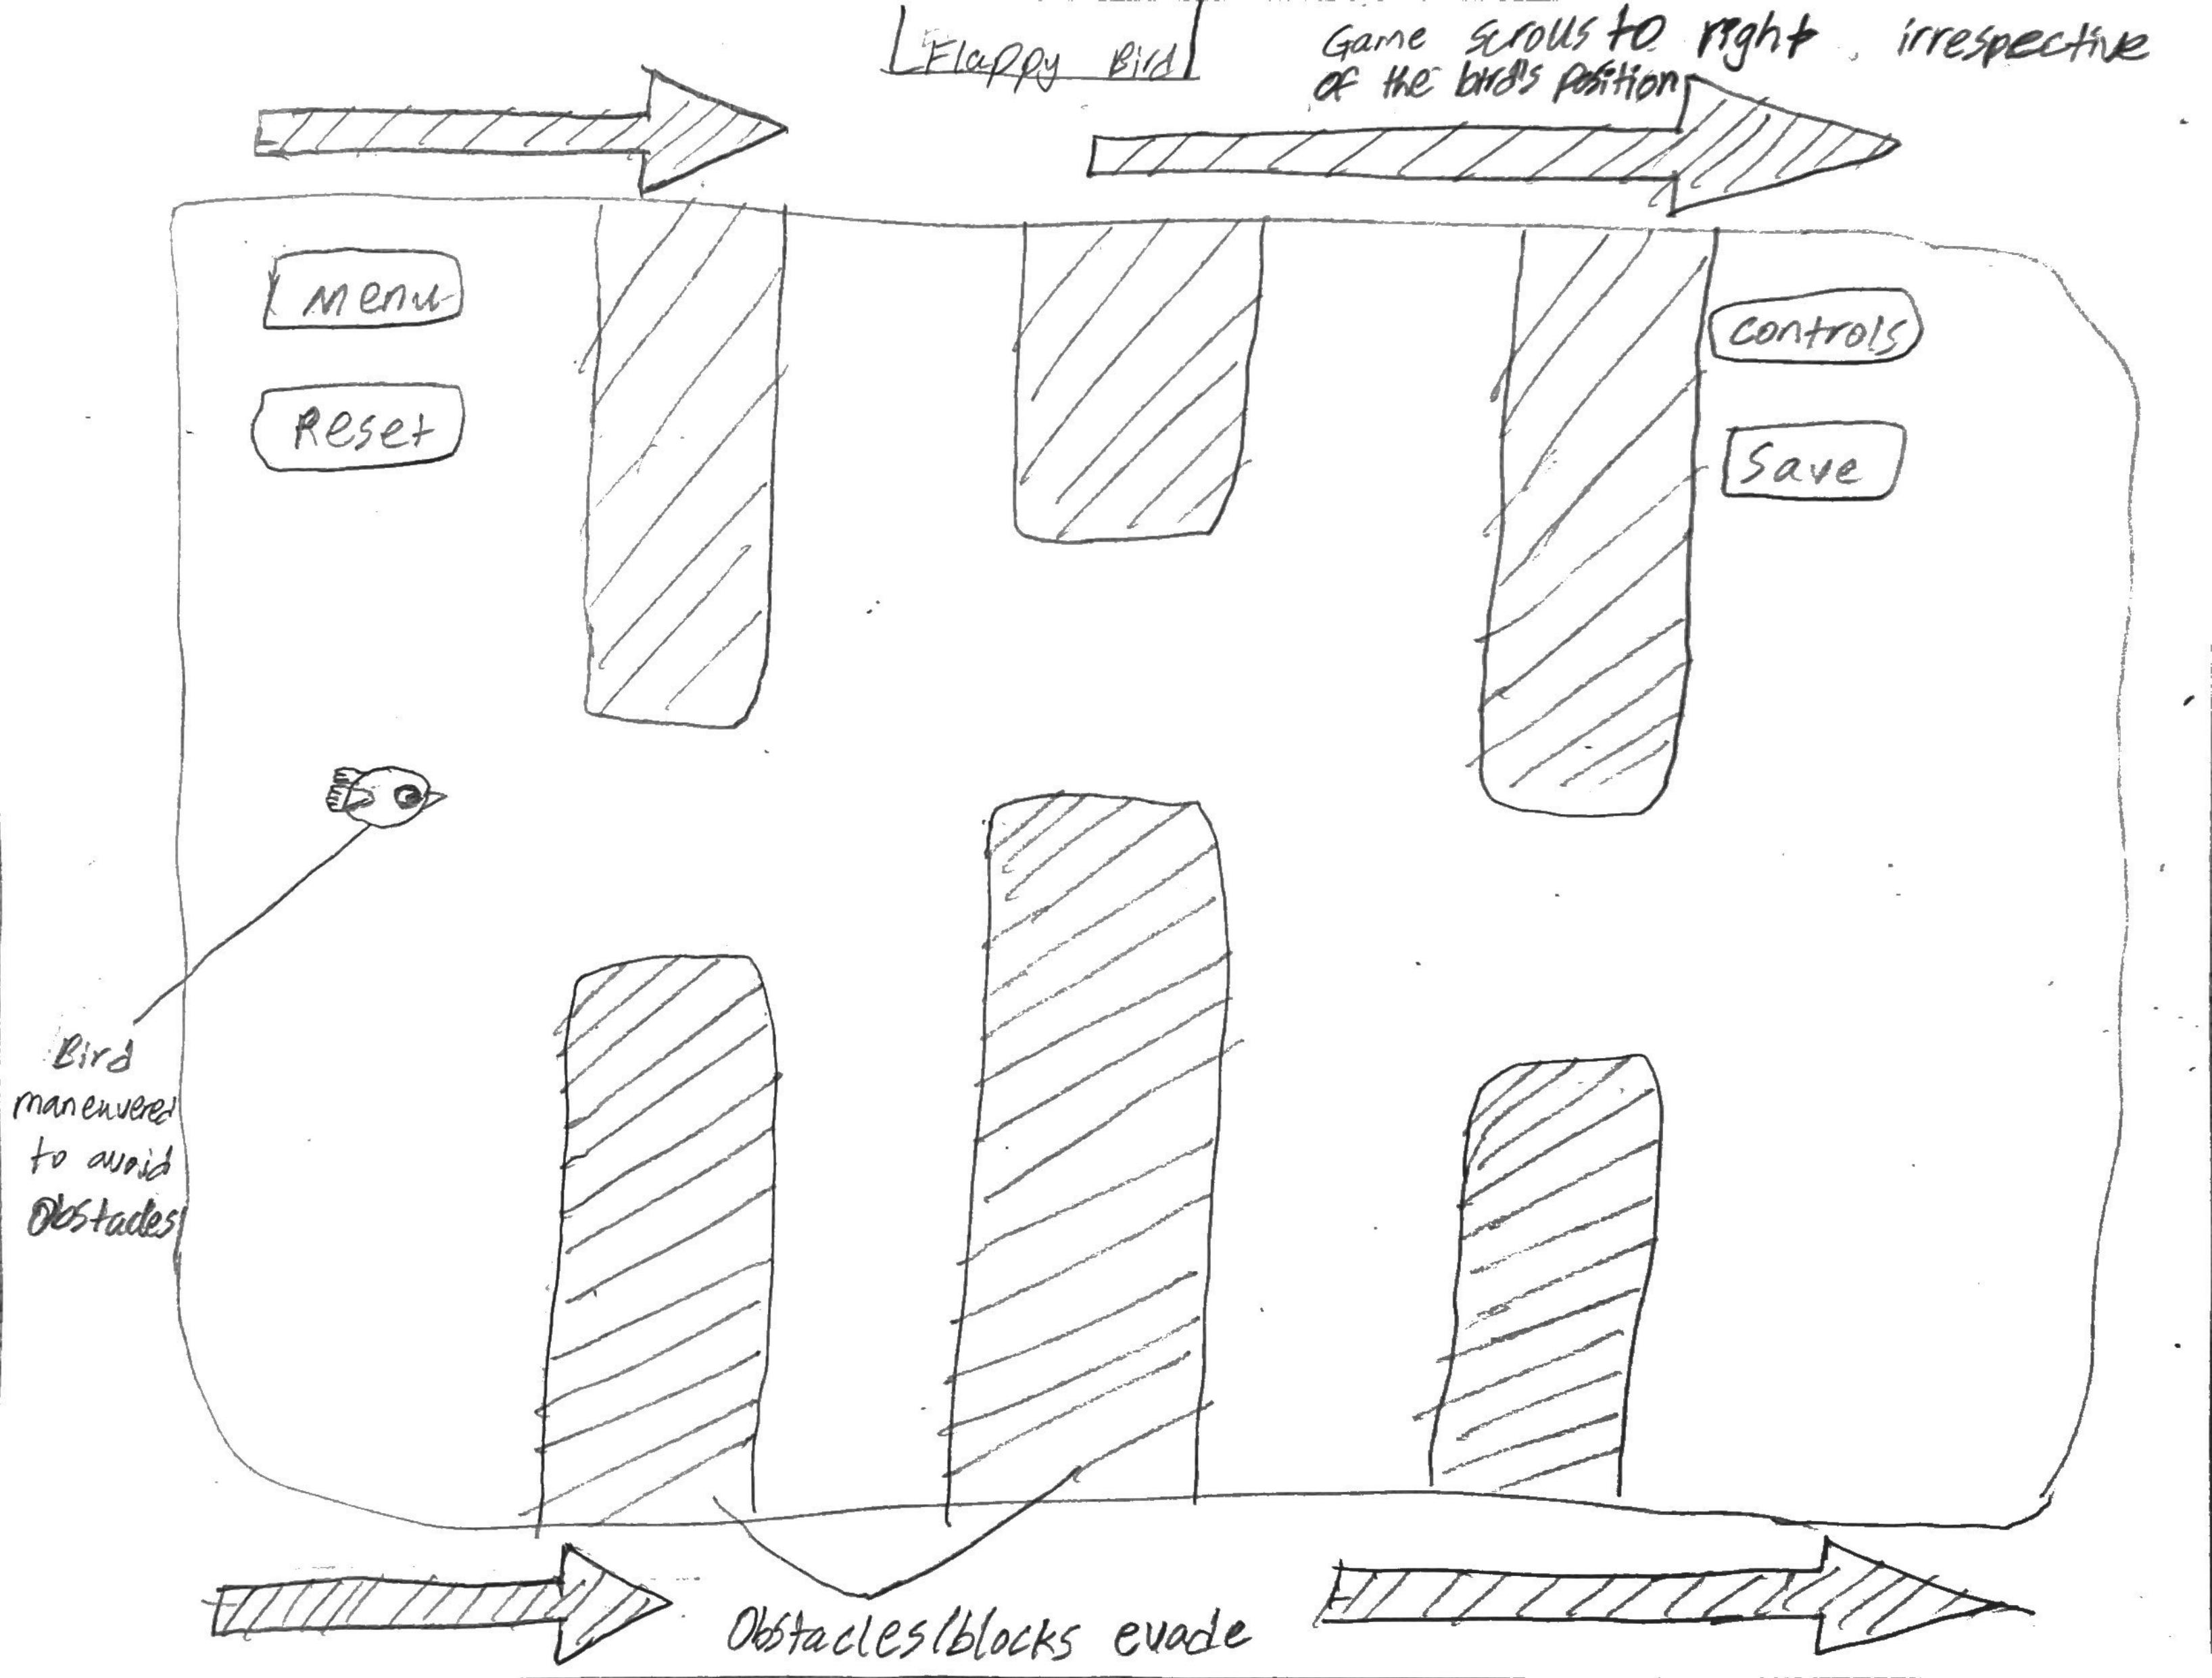 Flappy Bird
Game scrolls to right, irrespective
of the bird's position
Menu
Reset
Controls
Save
Bird
maneuvered
to avoid
Obstacles
Obstacles/blocks evade